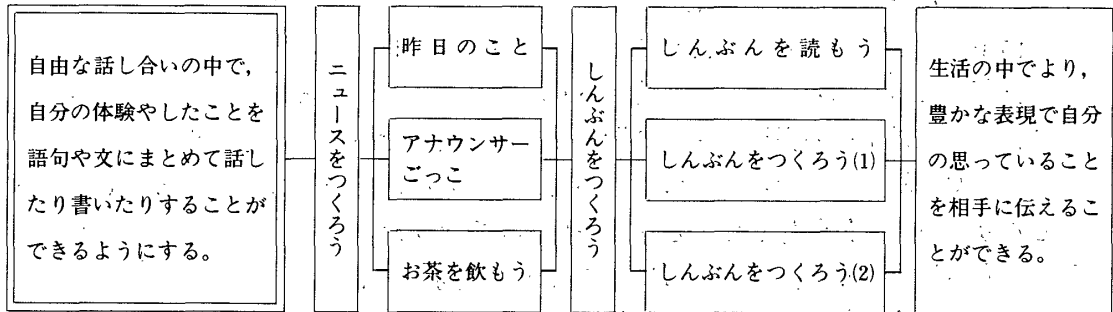 自由な話し合いの中で,
自分の体験やしたことを
語句や文にまとめて話し
たり書いたりすることが
できるようにする。
ニュースをつくろう
昨日のこと
アナウンサー
ごっこ
お茶を飲もう
しんぶんをつくろう
しんぶんを読もう
しんぶんをつくろう(1)
しんぶんをつくろう(2)
生活の中でより,
豊かな表現で自分
の思っていること
を相手に伝えるこ
とができる。